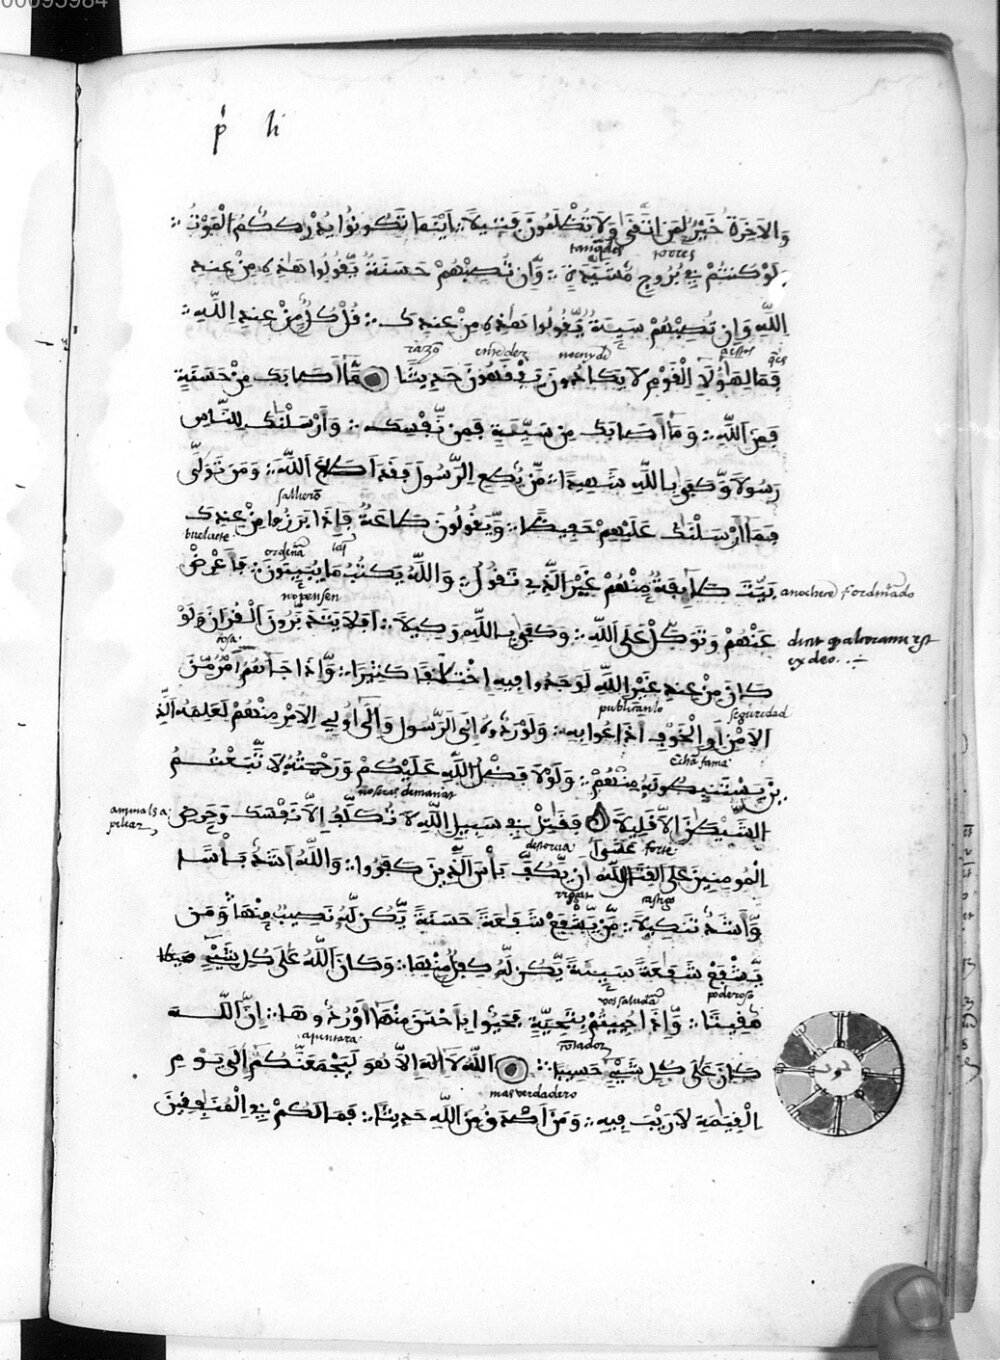 00095984
p li
وَالاَخِرَةُ خَيْرٌ لِّمَنِ اتَّقَىٰ وَلاَ تُظْلَمُونَ فَتِيلاً ∴ اَيْنَمَا تَكُونُوا يُدْرِككُّمُ الْمَوْتُ ∴
torres
لَوْ كُنتُمْ فِي بُرُوجٍ مُّشَيَّدَةٍ ∴ وَّإِن تُصِبْهُمْ حَسَنَةٌ يَّقُولُوا هَٰذِهِ مِنْ عِندِ
اِللَّهِ وَإِن تُصِبْهُمْ سَيِّئَةٌ يَّقُولُوا هَٰذِهِ مِنْ عِندِكَ ∴ قُلْ كُلٌّ مِّنْ عِندِ اِللَّهِ ∴
فَمَالِ هَٰؤُلَاءِ الْقَوْمِ لاَ يَكَادُونَ يَفْقَهُونَ حَدِيثًا مَّا أَصَابَكَ مِنْ حَسَنَةٍ
فَمِنَ اَللَّهِ ∴ وَمَا أَصَابَكَ مِن سَيِّئَةٍ فَمِن نَّفْسِكَ ∴ وَأَرْسَلْنَٰكَ لِلنَّاسِ
رَسُولاً وَّكَفَىٰ بِاللَّهِ شَهِيدًا ∴ مَّنْ يُّطِعِ اِلرَّسُولَ فَقَدَ اَطَاعَ اَللَّهَ ∴ وَمَن تَوَلَّىٰ
salliero
فَمَا أَرْسَلْنَٰكَ عَلَيْهِمْ حَفِيظًا ∴ وَّيَقُولُونَ طَاعَةٌ فَإِذَا بَرَزُوا مِنْ عِندِكَ
bueluete ordena
بَيَّتَ طَائِفَةٌ مِّنْهُمْ غَيْرَ اَلَّذِي تَقُولُ ∴ وَاللَّهُ يَكْتُبُ مَا يُبَيِّتُونَ ∴ فَأَعْرِضْ
no pensen
عَنْهُمْ وَتَوَكَّلْ عَلَى اَللَّهِ ∴ وَكَفَىٰ بِاللَّهِ وَكِيلاً ∴ اَفَلاَ يَتَدَبَّرُونَ اَلْقُرْءَانَ وَلَوْ
ex deo
كَانَ مِنْ عِندِ غَيْرِ اِللَّهِ لَوَجَدُوا فِيهِ اِخْتِلَٰفًا كَثِيرًا ∴ وَّإِذَا جَاءَهُمُ أَمْرٌ مِّنَ
seguridad
اَلاَمْنِ أَوِ اِلْخَوْفِ أَذَاعُوا بِهِ ∴ وَلَوْ رَدُّوهُ إِلَى اَلرَّسُولِ وَإِلَىٰ أُولِي اِلاَمْرِ مِنْهُمْ لَعَلِمَهُ اَلَّذِ
echa fama
ينَ يَسْتَنبِطُونَهُ مِنْهُمْ ∴ وَلَوْلاَ فَضْلُ اُللَّهِ عَلَيْكُمْ وَرَحْمَتُهُ لاَتَّبَعْتُمُ
اُلشَّيْطَٰنَ إِلاَّ قَلِيلاً فَقَٰتِلْ فِي سَبِيلِ اِللَّهِ لاَ تُكَلَّفُ إِلاَّ نَفْسَكَ وَحَرِّضِ
forte
اِلْمُومِنِينَ عَلَى اَلْقِتَالِ اللَّهُ أَنْ يَّكُفَّ بَأْسَ اَلَّذِينَ كَفَرُوا ∴ وَاللَّهُ أَشَدُّ بَأْسًا
وَّأَشَدُّ تَنكِيلاً ∴ مَّنْ يَّشْفَعْ شَفَٰعَةً حَسَنَةً يَّكُن لَّهُ نَصِيبٌ مِّنْهَا وَمَنْ
يَّشْفَعْ شَفَٰعَةً سَيِّئَةً يَّكُن لَّهُ كِفْلٌ مِّنْهَا ∴ وَكَانَ اَللَّهُ عَلَىٰ كُلِّ شَيْءٍ
poderoso
مُّقِيتًا ∴ وَّإِذَا حُيِّيتُم بِتَحِيَّةٍ فَحَيُّوا بِأَحْسَنَ مِنْهَا أَوْ رُدُّوهَا ∴ إِنَّ اَللَّهَ
كَانَ عَلَىٰ كُلِّ شَيْءٍ حَسِيبًا ∴ اَللَّهُ لاَ إِلَٰهَ إِلاَّ هُوَ لَيَجْمَعَنَّكُمُ إِلَىٰ يَوْمِ
mas verdadero
اِلْقِيَٰمَةِ لاَ رَيْبَ فِيهِ ∴ وَمَنَ اَصْدَقُ مِنَ اَللَّهِ حَدِيثًا ∴ فَمَا لَكُمْ فِي اِلْمُنَٰفِقِينَ